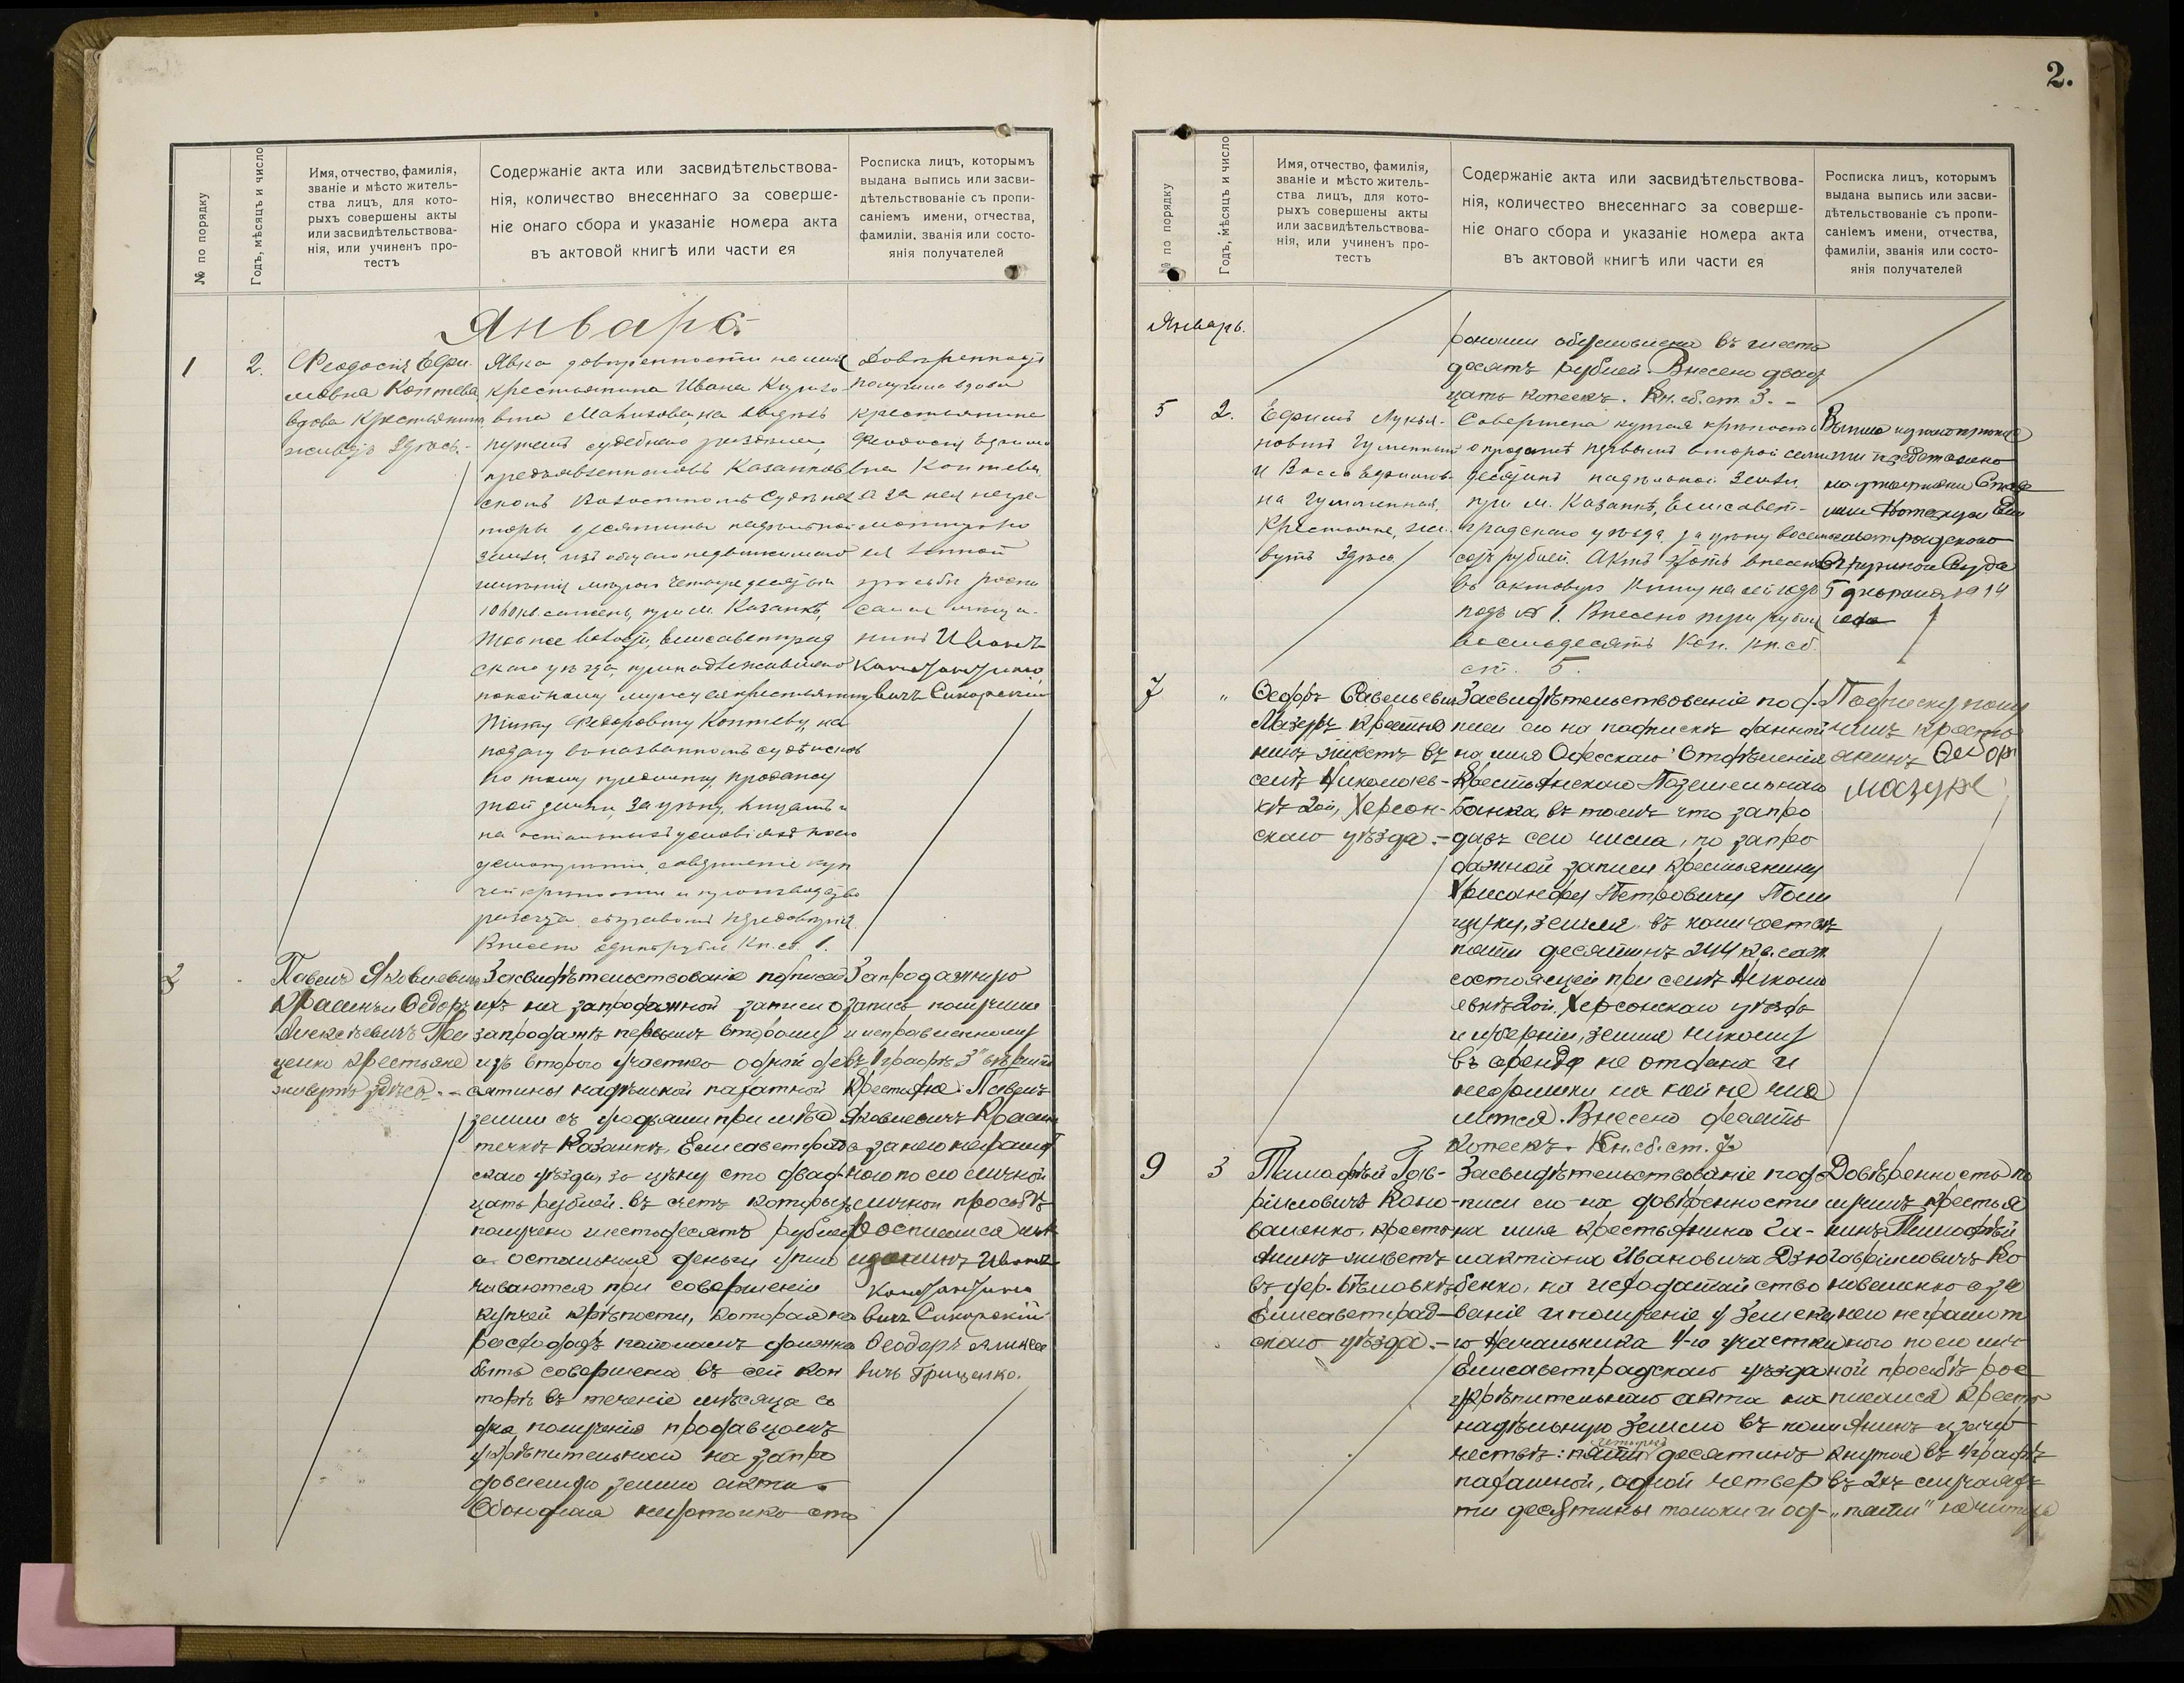 2.
№ по порядку
Годъ, мѣсяцъ и число
Имя, отчество, фамилія,
званіе и мѣсто житель-
ства лицъ, для кото-
рыхъ совершены акты
или засвидѣтельствова-
нія, или учиненъ про-
тестъ
Содержаніе акта или засвидѣтельствова-
нія, количество внесеннаго за соверше-
ніе онаго сбора и указаніе номера акта
въ актовой книгѣ или части ея
Росписка лицъ, которымъ
выдана выпись или засви-
дѣтельствованіе съ пропи-
саніемъ имени, отчества,
фамиліи, званія или состо-
янія получателей
Январь
1
2.
Феодосія Ефи-
мовна Коптева
вдова крестьянина
живетъ здѣсь.
Явка довѣренности на имя
крестьянина Ивана Кузьмо-
вича на веденіе
путемъ судебнаго раздѣла
предъявленнаго въ Казанков
скомъ Волостномъ Судѣ
десятины надѣльной
земли, изъ общаго недвижимаго
имѣнія мѣрою четыре десятины
1060 кв. сажень, при м. Казанкѣ,
той же волости, Елисаветград
скаго уѣзда, принадлежавшаго
покойному мужу ея крестьянину
Федоровичу Коптеву, на
подачу въ названномъ судѣ исковъ
по тому предмету, продажу
той земли, за цѣну, кому и
на остальныхъ условіяхъ по его
усмотрѣнію, совершеніе куп
чей крѣпости и производство
разсчета съ правомъ передовѣрія.
Внесено одинъ рубль Кн. сб. 1.
Довѣренность
получила вдова
крестьянина
Феодосія Ефимо
вна Коптева
а за нея негра-
мотную по
ея личной
просьбѣ распи
сался мѣща-
нинъ Иванъ
Константино
вичъ Сикорскій
2
Павелъ Яковлевичъ
Крамнъ и Федоръ
Алексѣевичъ Гри
ценко крестьяне
живутъ здѣсь.
Засвидѣтельствованіе подписей
ихъ на запродажной записи о
запродажѣ первымъ второму
изъ второго участка одной де
сятины надѣльной пахатной
земли съ грядами при мѣс
течкѣ Казанкѣ, Елисаветград
скаго уѣзда, за цѣну сто двад
цать рублей. въ счетъ которыхъ
получено шестьдесятъ рублей
а остальныя деньги упла
чиваются при совершеніи
купчей крѣпости, которая на
расходахъ пополамъ должна
быть совершена въ сей кон
торѣ въ теченіе мѣсяца со
дня полученія продавцомъ
укрѣпительнаго на запро
даваемую землю акта.
Обоюдная неустойка сто
Запродажную
запись получили
и исправленному
въ графѣ 3 вѣрить
Крестьяне: Павелъ
Яковлевичъ Крамн
а за него неграмот
наго по его личной
личной просьбѣ
росписался мѣ
щанинъ Иванъ
Константино
вичъ Сикорскій
Феодоръ Алексее
вичъ Гриценко.
№ по порядку
Годъ, мѣсяцъ и число
Имя, отчество, фамилія,
званіе и мѣсто житель-
ства лицъ, для кото-
рыхъ совершены акты
или засвидѣтельствова-
нія, или учиненъ про-
тестъ
Содержаніе акта или засвидѣтельствова-
нія, количество внесеннаго за соверше-
ніе онаго сбора и указаніе номера акта
въ актовой книгѣ или части ея
Росписка лицъ, которымъ
выдана выпись или засви-
дѣтельствованіе съ пропи-
саніемъ имени, отчества,
фамиліи, званія или состо-
янія получателей
Январь.
ронами обусловлена въ шесть
десятъ рублей. Внесено двад
цать копеекъ. Кн. сб. ст. 3.
5
2.
Ефимъ Лукья-
новичъ Гуменный
и Васса Ефимов-
на Гуменная,
крестьяне, жи-
вутъ здѣсь
Совершена купчая крѣпость
о продажѣ первымъ второй семи
десятинъ надѣльной земли
при м. Казанкѣ, Елисавет-
градскаго уѣзда, за цѣну восемь
сотъ рублей. Актъ этотъ внесенъ
въ актовую книгу на сей годъ
подъ № 1. Внесено три рубля
восемьдесятъ коп. Кн. сб.
ст. 5.
Выпись изъ акта
представлено
на утвержденіе Старш
Нотаріуса Ели
саветградскаго
Окружного Суда
5 января 1914
года
7
"
Ѳедоръ Савельевичъ
Мазуръ крестья
нинъ живетъ въ
селѣ Николаев-
кѣ 2ой, Херсон-
скаго уѣзда.
Засвидѣтельствованіе под-
писи его на подпискѣ данной
на имя Одесскаго Отдѣленія
Крестьянскаго Поземельнаго
Банка, въ томъ что запро
давъ сего числа, по запро
дажной записи крестьянину
Хрисанфу Петровичу Поли
щуку, земли въ количествѣ
пяти десятинъ 244 кв. саж.
состоящей при селѣ Никола
евкѣ 2ой, Херсонскаго уѣзда
и губерніи, земля никому
въ аренду не отдана и
недоимки на ней не чис
лится. Внесено десять
копеекъ. Кн. сб. ст. 7
Подписку полу
чилъ кресть
янинъ Ѳедоръ
Мазуръ
9
3
Тимофѣй Гав-
рииловичъ Коно-
валенко, кресть
янинъ живетъ
въ дер. Бѣляевкѣ
Елисаветград-
скаго уѣзда.
Засвидѣтельствованіе под-
писи его на довѣренности
на имя крестьянина Га-
лактіона Ивановича Дзю
бенко, на исходатайство
ваніе и полученіе у Земска
го Начальника 4-го участка
Елисаветградскаго уѣзда
укрѣпительнаго акта на
надѣльную землю въ коли
чествѣ: пяти четырехъ десятинъ
пахатной, одной четвер
ти десятины толоки и од-
Довѣренность по
лучилъ крестья
нинъ Тимофѣй
Гавриловичъ Ко
новаленко а за
него неграмот
наго по его лич
ной просьбѣ рос
писался кресть
янинъ
въ графѣ
въ 2хъ случаяхъ
"пяти" не читать